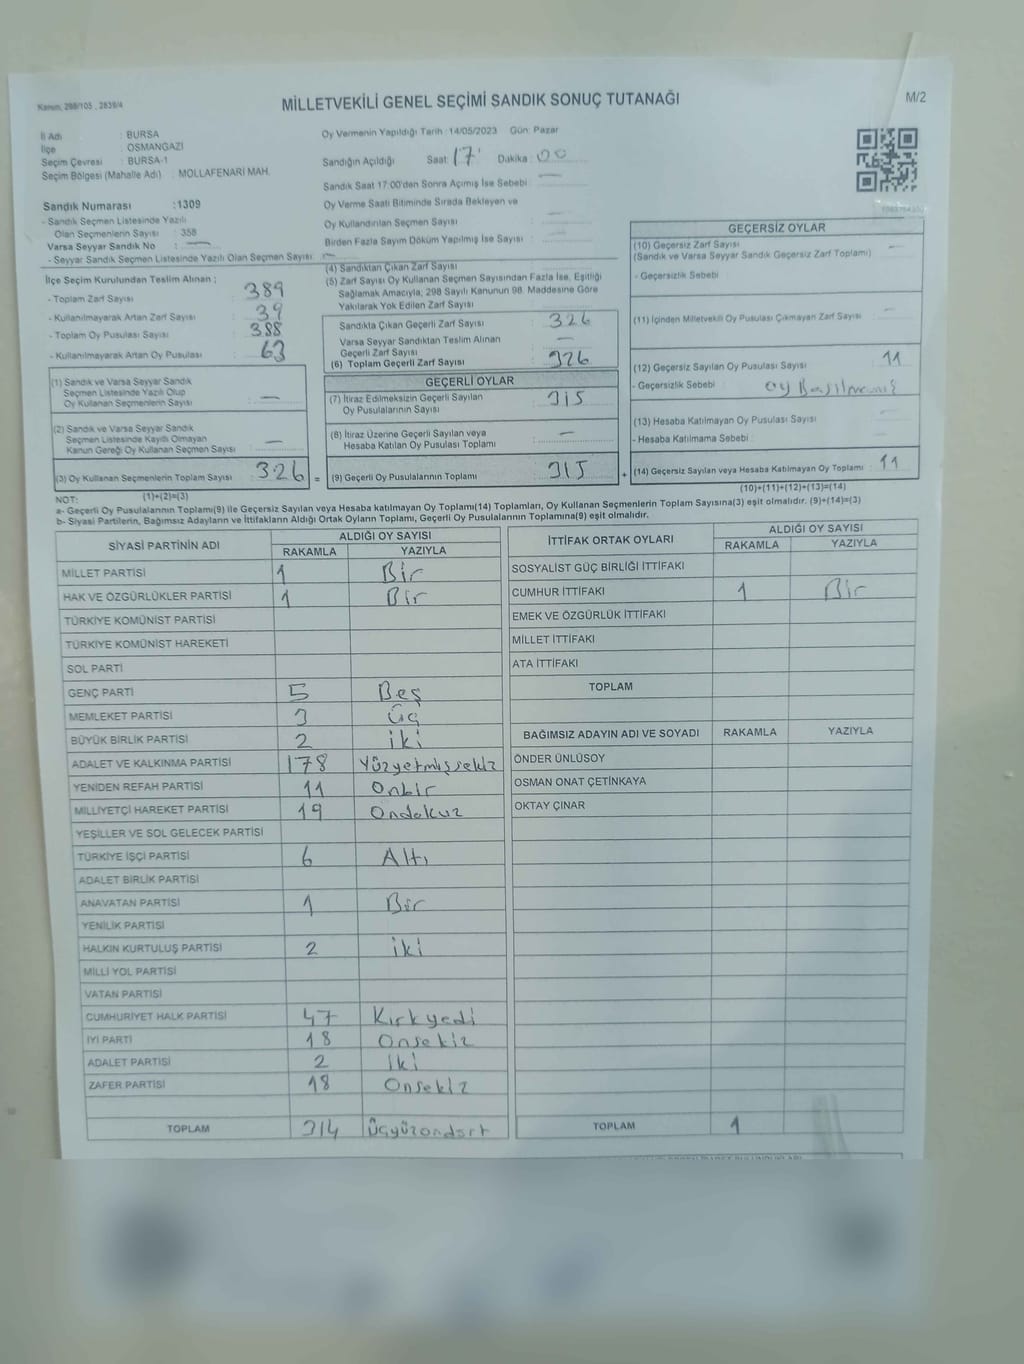 Kanun, 298/105 , 2839/4
MİLLETVEKİLİ GENEL SEÇİMİ SANDIK SONUÇ TUTANAĞI
M/2
İl Adı : BURSA
İlçe : OSMANGAZİ
Seçim Çevresi : BURSA-1
Seçim Bölgesi (Mahalle Adı) : MOLLAFENARİ MAH.
Sandık Numarası :1309
- Sandık Seçmen Listesinde Yazılı
Olan Seçmenlerin Sayısı : 358
Varsa Seyyar Sandık No : —
- Seyyar Sandık Seçmen Listesinde Yazılı Olan Seçmen Sayısı : —
Oy Vermenin Yapıldığı Tarih :14/05/2023 Gün: Pazar
Sandığın Açıldığı Saat: 17 Dakika : 00
Sandık Saat 17:00'den Sonra Açılmış İse Sebebi : —
Oy Verme Saati Bitiminde Sırada Bekleyen ve
Oy Kullandırılan Seçmen Sayısı : —
Birden Fazla Sayım Döküm Yapılmış İse Sayısı : —
İlçe Seçim Kurulundan Teslim Alınan ;
- Toplam Zarf Sayısı : 389
- Kullanılmayarak Artan Zarf Sayısı : 39
- Toplam Oy Pusulası Sayısı : 388
- Kullanılmayarak Artan Oy Pusulası : 63
(1) Sandık ve Varsa Seyyar Sandık
Seçmen Listesinde Yazılı Olup
Oy Kullanan Seçmenlerin Sayısı : —
(2) Sandık ve Varsa Seyyar Sandık
Seçmen Listesinde Kayıtlı Olmayan
Kanun Gereği Oy Kullanan Seçmen Sayısı : —
(3) Oy Kullanan Seçmenlerin Toplam Sayısı : 326 =
(1)+(2)=(3)
(4) Sandıktan Çıkan Zarf Sayısı
(5) Zarf Sayısı Oy Kullanan Seçmen Sayısından Fazla İse, Eşitliği
Sağlamak Amacıyla, 298 Sayılı Kanunun 98. Maddesine Göre
Yakılarak Yok Edilen Zarf Sayısı :
Sandıkta Çıkan Geçerli Zarf Sayısı : 326
Varsa Seyyar Sandıktan Teslim Alınan
Geçerli Zarf Sayısı : —
(6) Toplam Geçerli Zarf Sayısı : 326
GEÇERLİ OYLAR
(7) İtiraz Edilmeksizin Geçerli Sayılan
Oy Pusulalarının Sayısı : 315
(8) İtiraz Üzerine Geçerli Sayılan veya
Hesaba Katılan Oy Pusulası Toplamı : —
(9) Geçerli Oy Pusulalarının Toplamı : 315 +
GEÇERSİZ OYLAR
(10) Geçersiz Zarf Sayısı : —
(Sandık ve Varsa Seyyar Sandık Geçersiz Zarf Toplamı)
- Geçersizlik Sebebi :
(11) İçinden Milletvekili Oy Pusulası Çıkmayan Zarf Sayısı : —
(12) Geçersiz Sayılan Oy Pusulası Sayısı : 11
- Geçersizlik Sebebi : Oy Basılmamış
(13) Hesaba Katılmayan Oy Pusulası Sayısı : —
- Hesaba Katılmama Sebebi : —
(14) Geçersiz Sayılan veya Hesaba Katılmayan Oy Toplamı : 11
(10)+(11)+(12)+(13)=(14)
NOT:
a- Geçerli Oy Pusulalarının Toplamı(9) ile Geçersiz Sayılan veya Hesaba katılmayan Oy Toplamı(14) Toplamları, Oy Kullanan Seçmenlerin Toplam Sayısına(3) eşit olmalıdır. (9)+(14)=(3)
b- Siyasi Partilerin, Bağımsız Adayların ve İttifakların Aldığı Ortak Oyların Toplamı, Geçerli Oy Pusulalarının Toplamına(9) eşit olmalıdır.
SİYASİ PARTİNİN ADI ALDIĞI OY SAYISI
RAKAMLA YAZIYLA
MİLLET PARTİSİ 1 Bir
HAK VE ÖZGÜRLÜKLER PARTİSİ 1 Bir
TÜRKİYE KOMÜNİST PARTİSİ
TÜRKİYE KOMÜNİST HAREKETİ
SOL PARTİ
GENÇ PARTİ 5 Beş
MEMLEKET PARTİSİ 3 Üç
BÜYÜK BİRLİK PARTİSİ 2 iki
ADALET VE KALKINMA PARTİSİ 178 Yüzyetmişsekiz
YENİDEN REFAH PARTİSİ 11 Onbir
MİLLİYETÇİ HAREKET PARTİSİ 19 Ondokuz
YEŞİLLER VE SOL GELECEK PARTİSİ
TÜRKİYE İŞÇİ PARTİSİ 6 Altı
ADALET BİRLİK PARTİSİ
ANAVATAN PARTİSİ 1 Bir
YENİLİK PARTİSİ
HALKIN KURTULUŞ PARTİSİ 2 iki
MİLLİ YOL PARTİSİ
VATAN PARTİSİ
CUMHURİYET HALK PARTİSİ 47 Kırkyedi
İYİ PARTİ 18 Onsekiz
ADALET PARTİSİ 2 iki
ZAFER PARTİSİ 18 Onsekiz
TOPLAM 314 Üçyüzondört
İTTİFAK ORTAK OYLARI ALDIĞI OY SAYISI
RAKAMLA YAZIYLA
SOSYALİST GÜÇ BİRLİĞİ İTTİFAKI
CUMHUR İTTİFAKI 1 Bir
EMEK VE ÖZGÜRLÜK İTTİFAKI
MİLLET İTTİFAKI
ATA İTTİFAKI
TOPLAM
BAĞIMSIZ ADAYIN ADI VE SOYADI RAKAMLA YAZIYLA
ÖNDER ÜNLÜSOY
OSMAN ONAT ÇETİNKAYA
OKTAY ÇINAR
TOPLAM 1